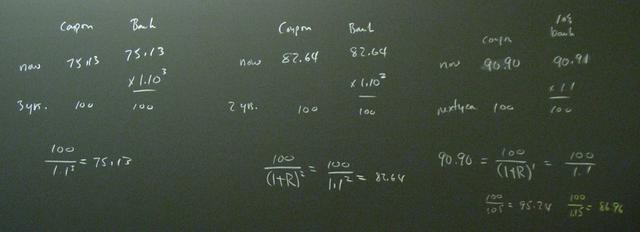 Coupon Bank
now 75.13 75.13
× 1.10³
3 yrs. 100 100
100/1.1³ = 75.13
Coupon Bank
now 82.64 82.64
× 1.10²
2 yrs. 100 100
100/(1+R)² = 100/1.1² = 82.64
10%
coupon bank
now 90.90 90.91
× 1.1
next year 100 100
90.90 = 100/(1+R)¹ = 100/1.1
100/1.05 = 95.24 100/1.15 = 86.96